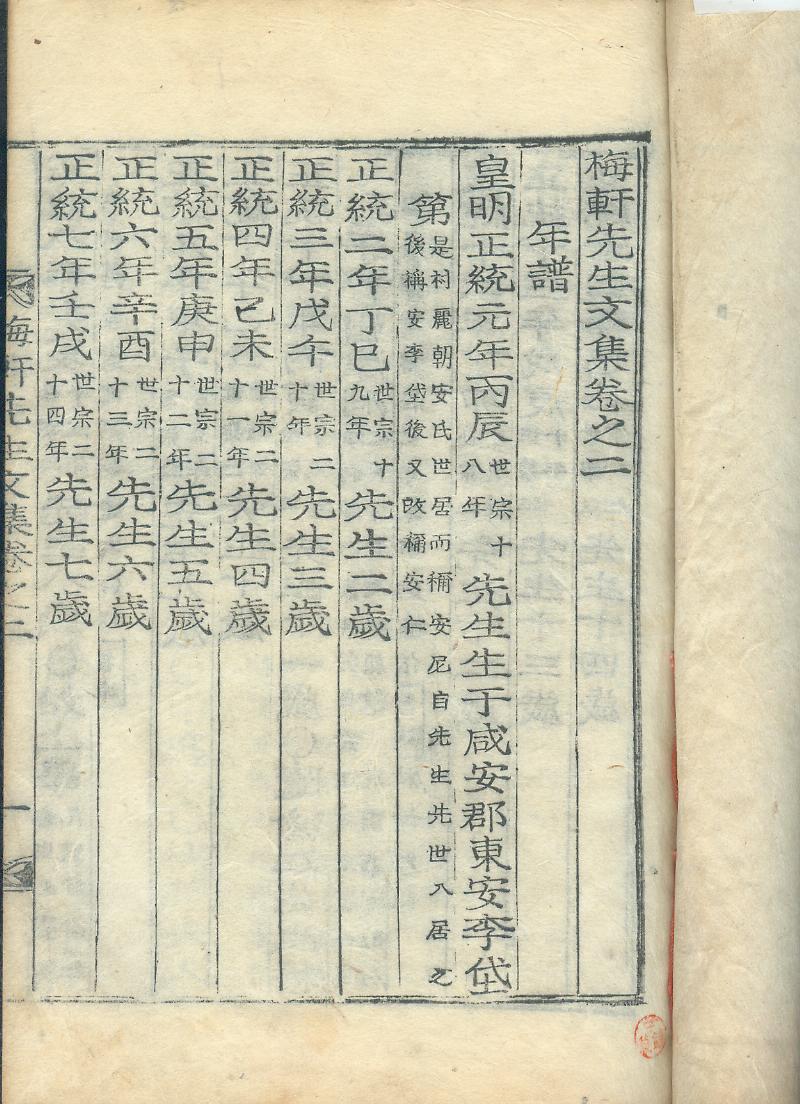 梅軒先生文集卷之二
年譜
皇明正統元年丙辰世宗十八年先生生于咸安郡東安李垈
第是村麗朝安氏世居而稱安尼自先生先世入居之
後稱安李垈後又改稱安仁
正統二年丁巳世宗十九年先生二歲
正統三年戊午世宗二十年先生三歲
正統四年己未世宗二十一年先生四歲
正統五年庚申世宗二十二年先生五歲
正統六年辛酉世宗二十三年先生六歲
正統七年壬戌世宗二十四年先生七歲
梅軒先生文集卷之二
一